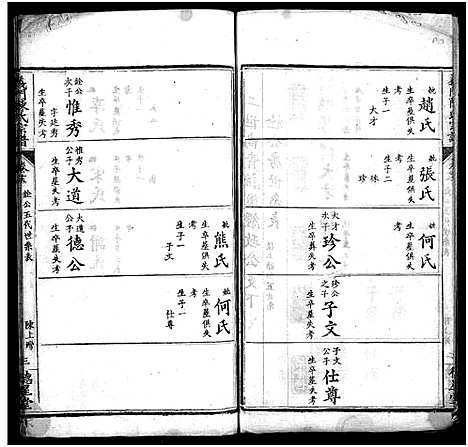 妣趙氏
生卒墓俱失
考
生子一
大才
妣張氏
生卒墓俱失
考
生子二
株
珍
妣何氏
生卒墓俱失
考
大才
公子
珍公
生卒葬失考
珍公
之子
子文
生卒墓失考
子文
公子
仕尊
生卒墓失考
妣熊氏
生卒墓俱失
考
生子一
子文
妣何氏
生卒墓俱失
考
生子一
仕尊
銓公
次子
惟秀
字廷秀
生卒墓失考
惟秀
公子
大道
生卒墓失考
大道
公子
德公
生卒墓失考
義門陳氏宗譜
公五代世系表
三